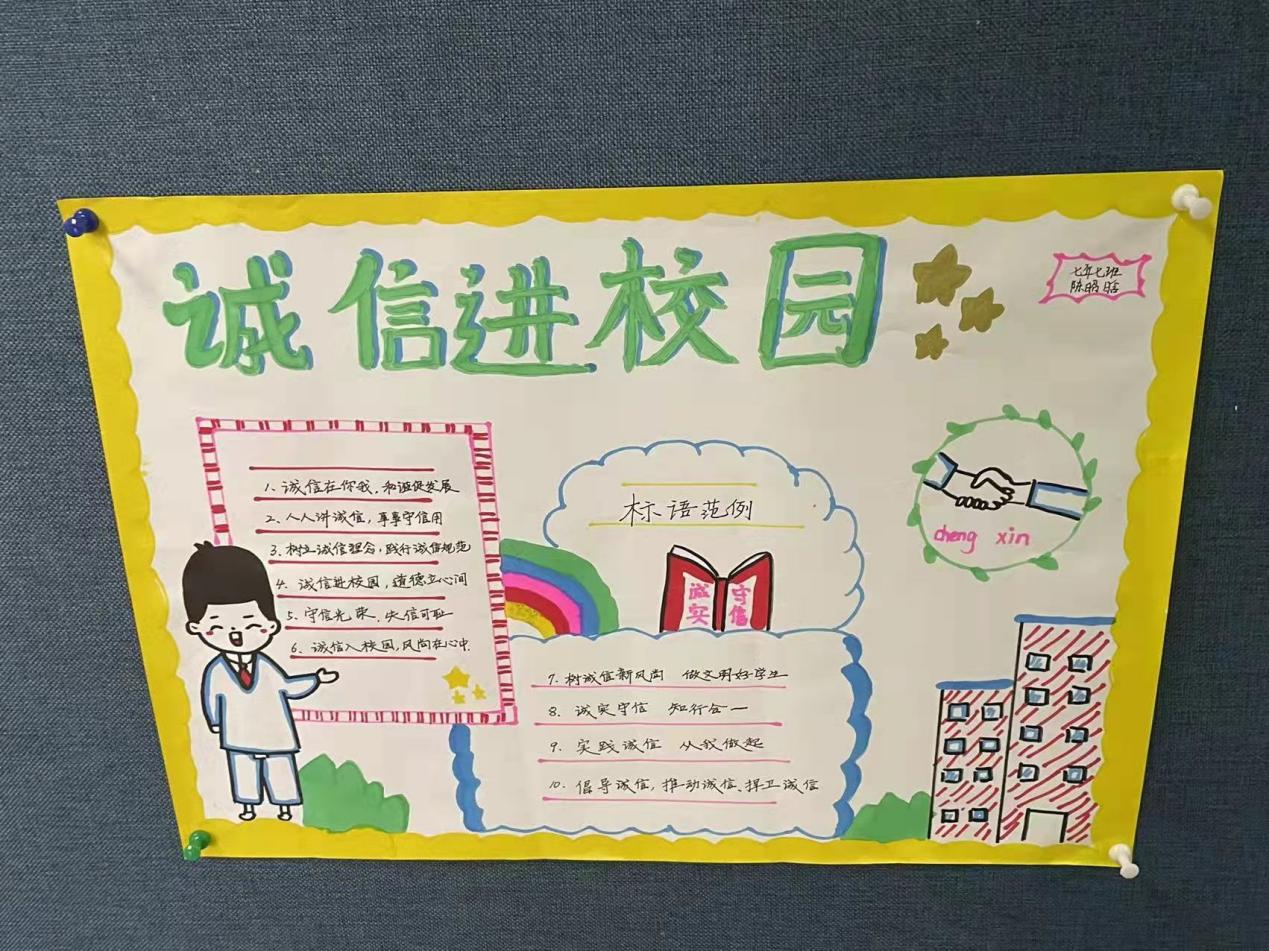 诚信进校园
七年七班
陈昭晗
1. 诚信在你我，和谐促发展
2. 人人讲诚信，事事守信用
3. 树立诚信理念，践行诚信规范
4. 诚信进校园，道德立心间
5. 守信光荣，失信可耻
6. 诚信入校园，风尚在心中.
标语范例
诚实 守信
cheng xin
7. 树诚信新风尚 做文明好学生
8. 诚实守信 知行合一
9. 实践诚信 从我做起
10. 倡导诚信，推动诚信、捍卫诚信